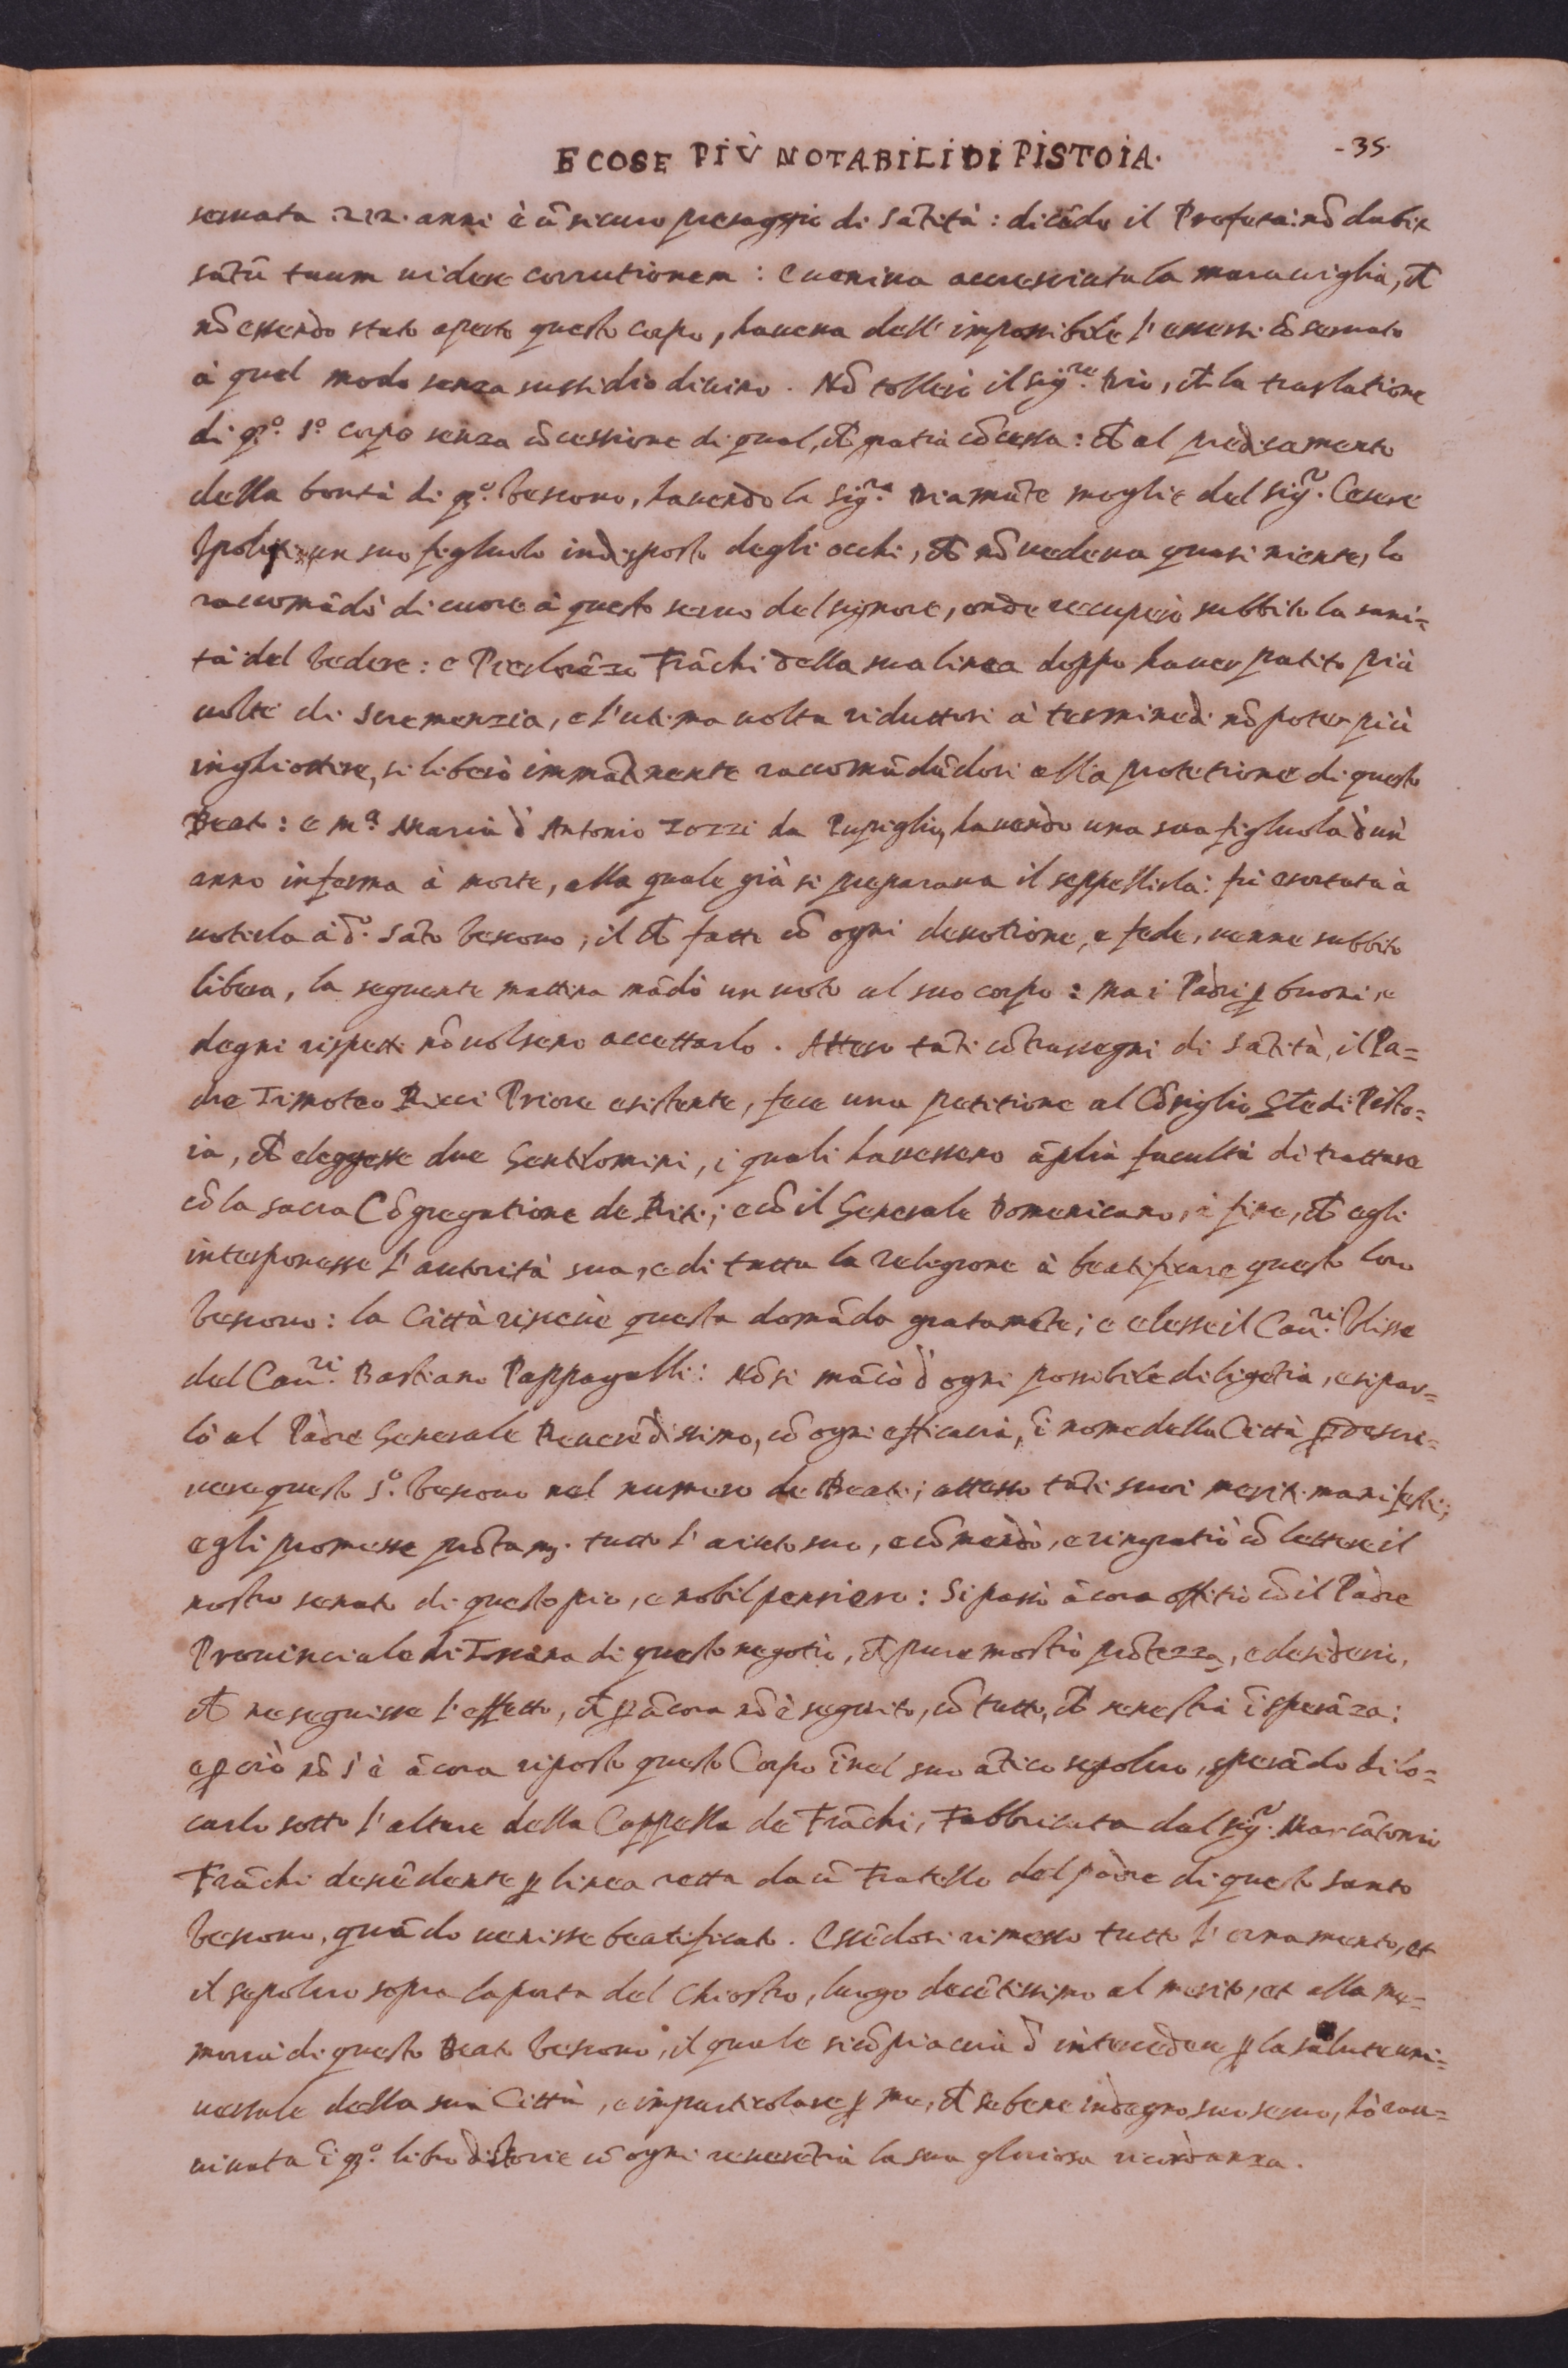 E COSE PIÙ NOTABILI DI PISTOIA. -35.
seruata 212. anni è ũ sicuro presaggio di sãtità: dicẽdo il Profeta: nõ dabis
sãtũ tuum uidere corrutionem: e ueniua accresciuta la marauiglia, ch̃
nõ essendo stato aperto questo corpo, haueua dell' impossibile l' essersi cõseruato
à quel modo senza sussidio diuino. Nõ tollerò il sig.re Dio, ch̃ la traslatione
di q.o s.o corpo senza cõcessione di qual, ch̃ gratia cõcessa: ch̃ al predicamento
della bontà di q.o Vescouo, hauendo la Sig.ra Diamãte moglie del Sig.r Cesare
Ipoliti un suo figliuolo indisposto degli occhi, ch̃ nõ uedeua quasi niente, lo
raccomãdò di cuore à questo seruo del signore, onde recuperò subbito la sani=
tà del Vedere: e Pierlorẽzo Frãchi della sua linea doppo hauer patito più
uolte di Scremenzia, e l' ultima uolta riduttosi à termine di nõ poter più
inghiottire, si liberò immãtinente raccomãdãdosi alla protetione di questo
Beato: e M.a Maria d' Antonio Zozzi da Pupiglio, hauendo una sua figliuola d' un
anno inferma à morte, alla quale già si preparaua il seppellirla: fu esortata à
uotirla à d.o Sãto Vescouo; il ch̃ fatto cõ ogni deuotione, e fede, uenne subbito
libera, la seguente mattina mãdò un uoto al suo corpo: ma i Padri ꝑ buoni, e
degni rispetti nõ uolsero accettarlo. Atteso tãti cõtrassegni di sãtità, il Pa=
dre Timoteo Ricci Priore esistente, fece una petitione al Cõsiglio Gle di Pisto=
ia, ch̃ eleggesse due Gentilomini, i quali hauessero ãplia facultà di trattare
cõ la sacra Cõgregatione de Riti; e cõ il Generale Domenicano, à fine, ch̃ egli
interponesse l' autorità sua, e di tutta la relegione à beatificare questo loro
Vescouo: la Città riceuè questa domãda gratamẽte; e elesse il Cau.ri Vlisse
del Cau.ri Bastiano Pappagalli: Nõ si mãcò d' ogni possibile diligẽtia, e si par=
lò al Padre Generale Reuerẽdissimo, cõ ogni efficacia, ĩ nome della Città ꝑ descri=
uere questo s.o Vescouo nel numero de Beati; atteso tãti suoi meriti manifesti;
egli promesse prõtam.e tutto l' aiuto suo, e cõmendò, e ringratiò cõ lettere il
nostro senato di questo pio, e nobil pensiero: Si passò ãcora offitio cõ il Padre
Prouinciale di Toscana di questo negotio, ch̃ pure mostrò prõtezza, e desiderio,
ch̃ ne seguisse l' effetto, ch̃ ꝑ ãcora nõ è seguito, cõ tutto, ch̃ se ne stia ĩ sperãza:
e ꝑ ciò nõ s' è ãcora riposto questo Corpo ĩnel suo ãtico sepolcro, sperãdo di lo=
carlo sotto l' altare della Cappella de Frãchi, Fabbricata dal sig.r Marcãtonio
Frãchi descẽdente ꝑ linea retta da ũ Fratello del padre di questo santo
Vescouo, quãdo uenisse beatificato. Essẽdosi rimesso tutto l' ornamento, et
il sepolcro sopra la porta del Chiostro, luogo decẽtissimo al merito, et alla me=
moria di questo Beato Vescouo, il quale si cõpiacerà d' intercedere ꝑ la salute uni=
uersale della sua Città, e imparticolare ꝑ me, ch̃ sebene indegno suo seruo, hò rau=
uiuata ĩ q.o libro d' Istorie cõ ogni reuerẽtia la sua gloriosa ricordanza.